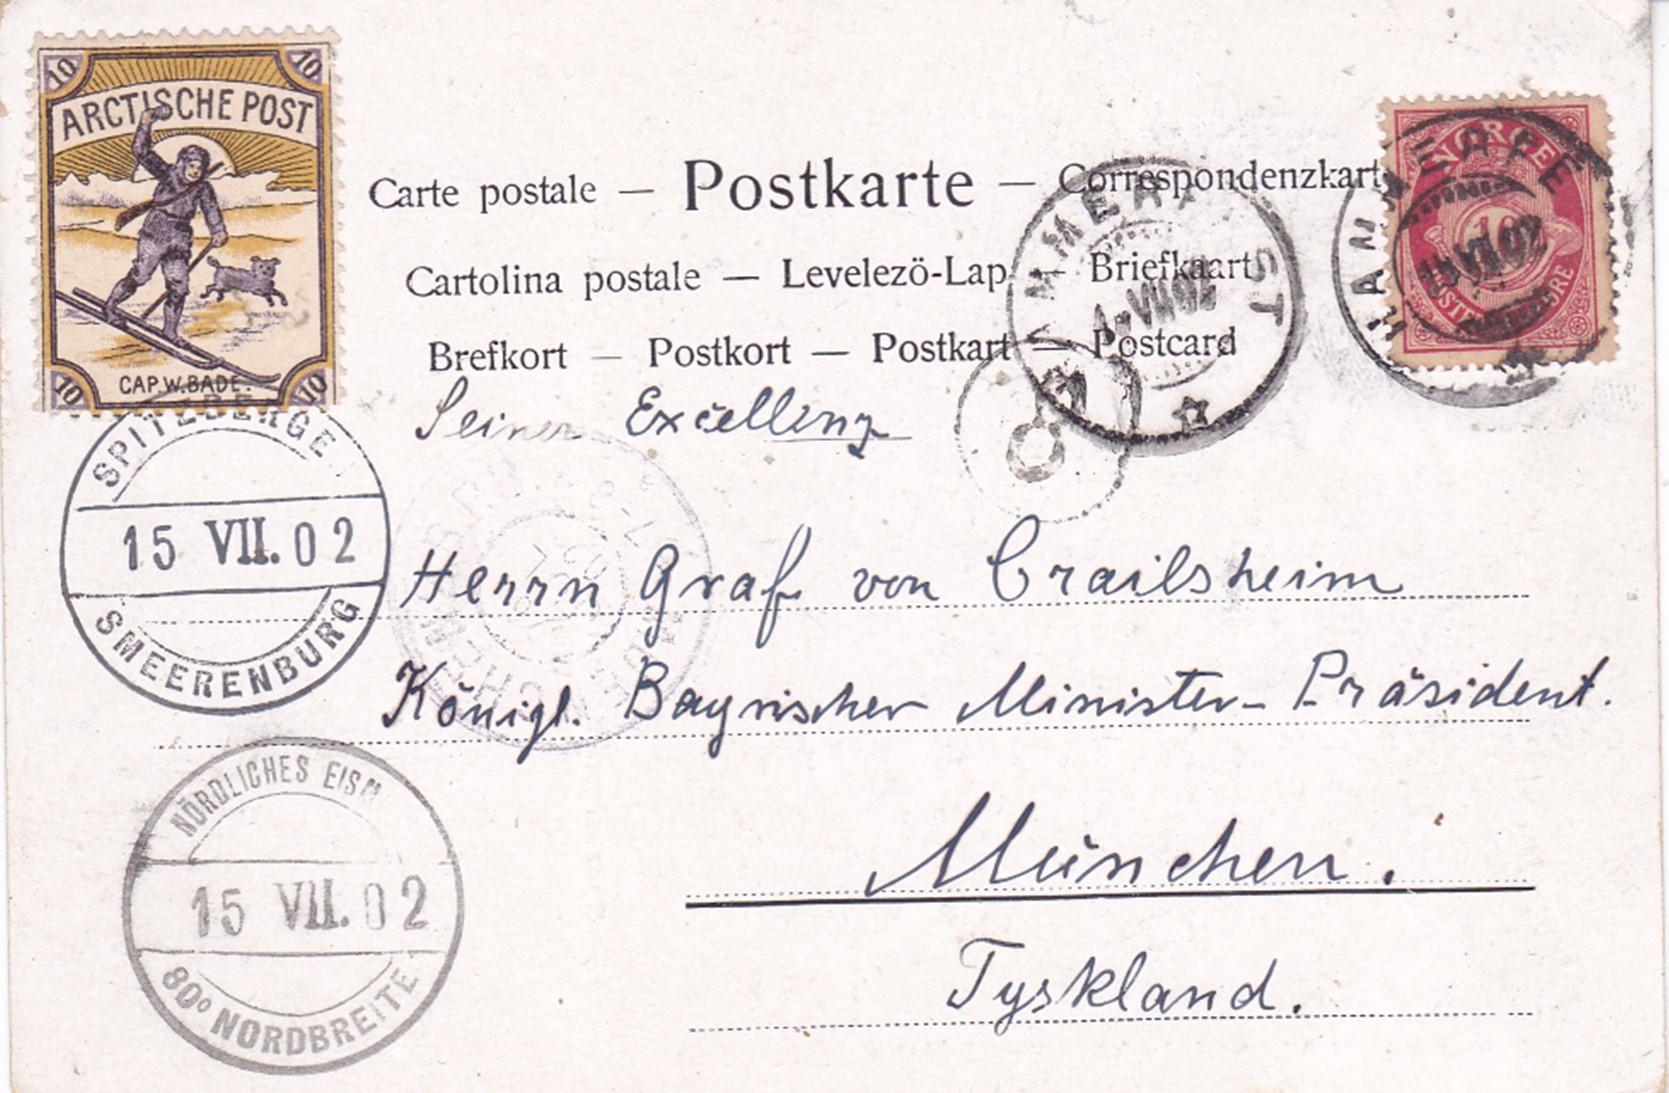 10 10
ARCTISCHE POST
CAP. W. BADE.
10 10
NORGE
10
HAMMERFEST
Carte postale — Postkarte — Correspondenzkart
Cartolina postale — Levelező-Lap — Briefkaart
Brefkort — Postkort — Postkart — Postcard
Seiner Excellenz
SPITZBERGEN
15 VII. 02
SMEERENBURG
Herrn Graf von Crailsheim
Königl. Bayrischer Minister-Präsident.
München.
Tyskland.
NÖRDLICHES EISM
15 VII. 02
80° NORDBREITE